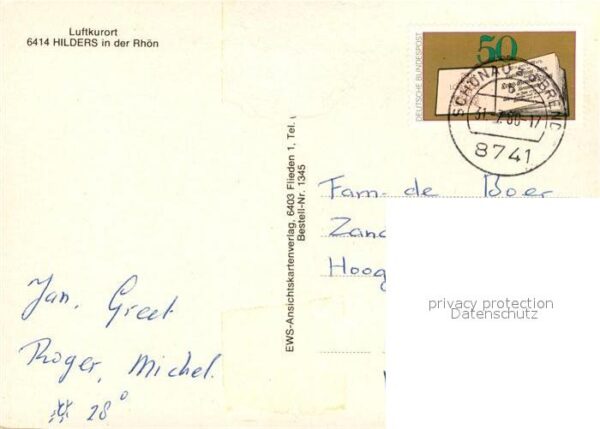 Luftkurort
6414 HILDERS in der Rhön
DEUTSCHE BUNDESPOST
50
SCHÖNAU a d BREND
31-7.80-17
8741
EWS-Ansichtskartenverlag, 6403 Flieden 1, Tel.
Bestell-Nr. 1345
Fam. de Boer
Zand
Hoog
Jan, Greet
Roger, Michel.
28°
privacy protection
Datenschutz